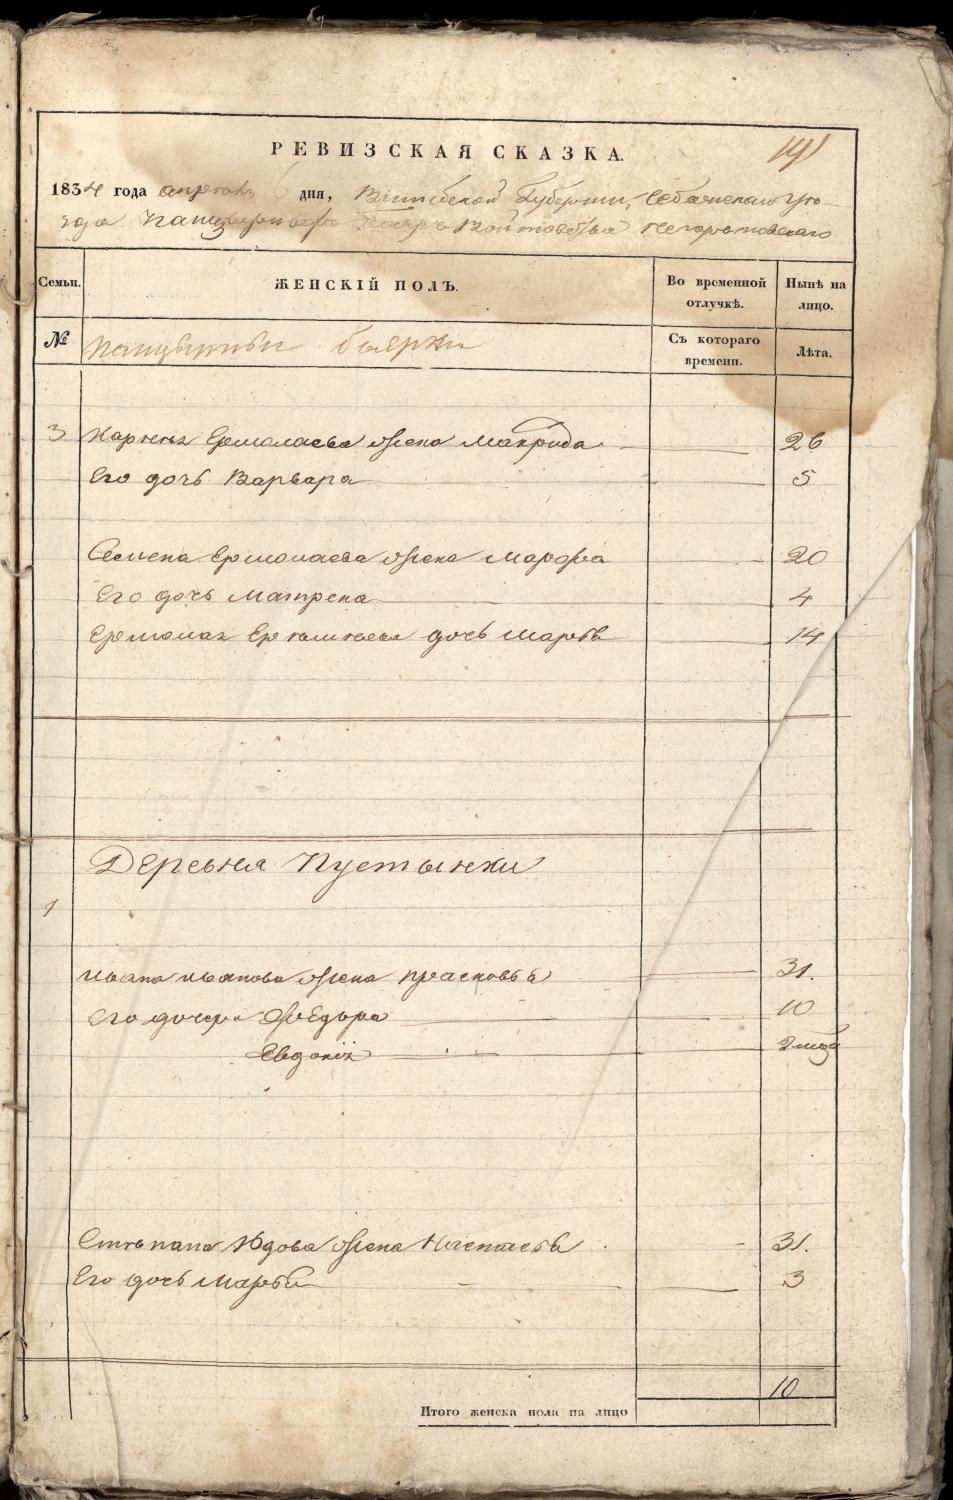 РЕВИЗСКАЯ СКАЗКА.
191
1834 года апреля 6 дня, Витебской Губернии, Себежскаго уѣ-
зда войтовства
Семьи.
ЖЕНСКІЙ ПОЛЪ.
Во временной отлучкѣ.
Нынѣ на лицо.
№
Панцырныи боярки
Съ котораго времени.
Лѣта.
3 Ермолаева жена Макрида 26
Его дочь Варвара 5
Семена Ермолаева жена Марфа 20
Его дочь Матрена 4
Ермолая дочь Марья 14
Деревня Пустынки
1
Ивана Иванова жена Прасковья 31.
Его дочери Федора 10
Евдокія 2
Степана жена 31.
Его дочь Марья 3
10
Итого женска пола на лицо